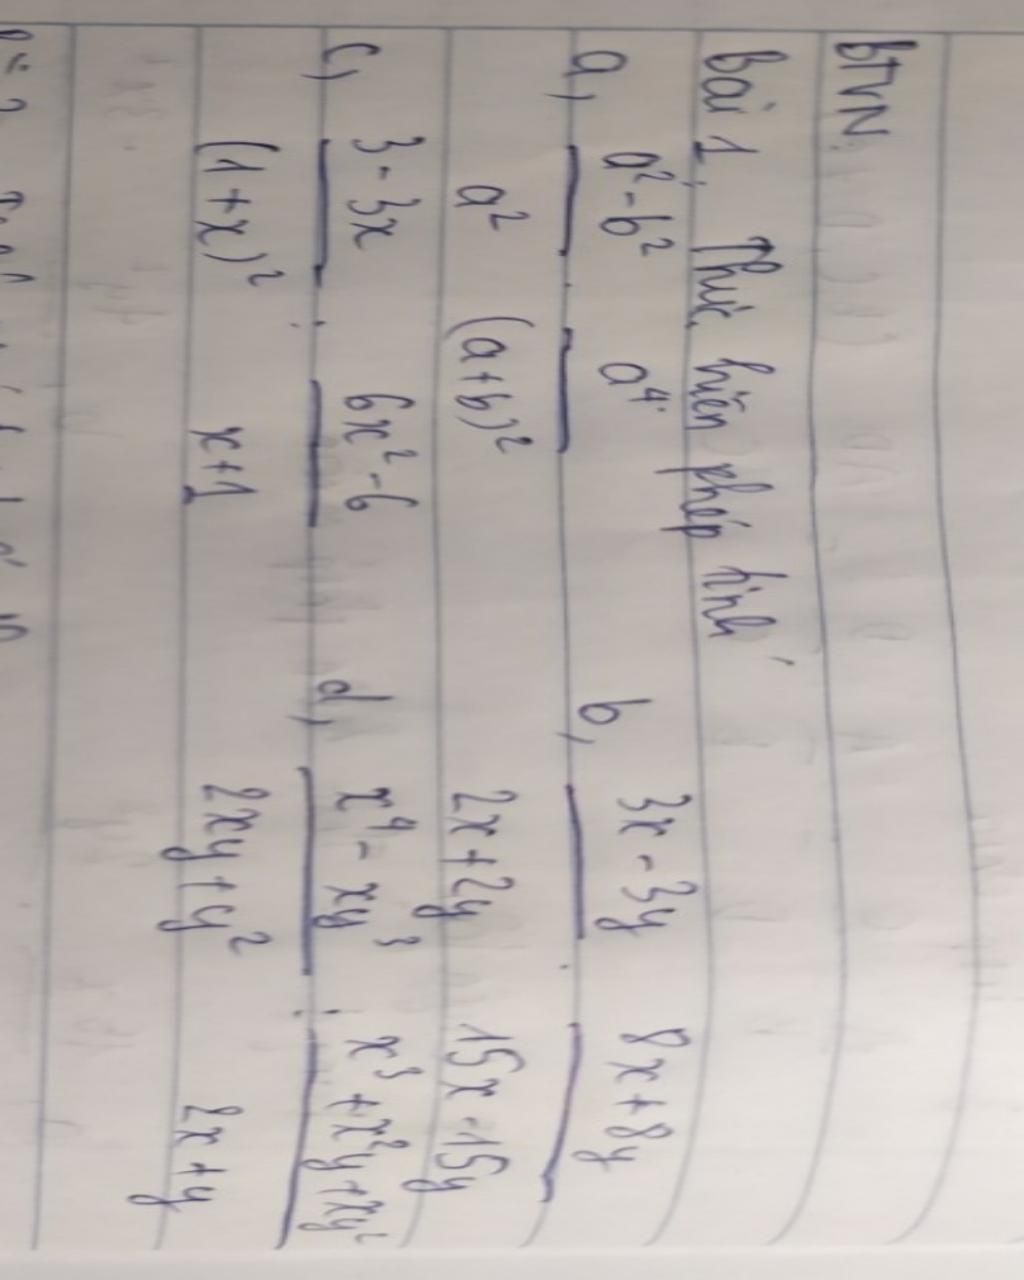 BTVN:
Bài 1: Thực hiện phép tính
a, (a² - b²)/a² · a⁴/(a+b)² b, (3x - 3y)/(2x + 2y) · (8x + 8y)/(15x - 15y)
c, (3 - 3x)/(1+x)² : (6x² - 6)/(x+1) d, (x⁴ - xy³)/(2xy + y²) : (x³ + x²y + xy²)/(2x + y)